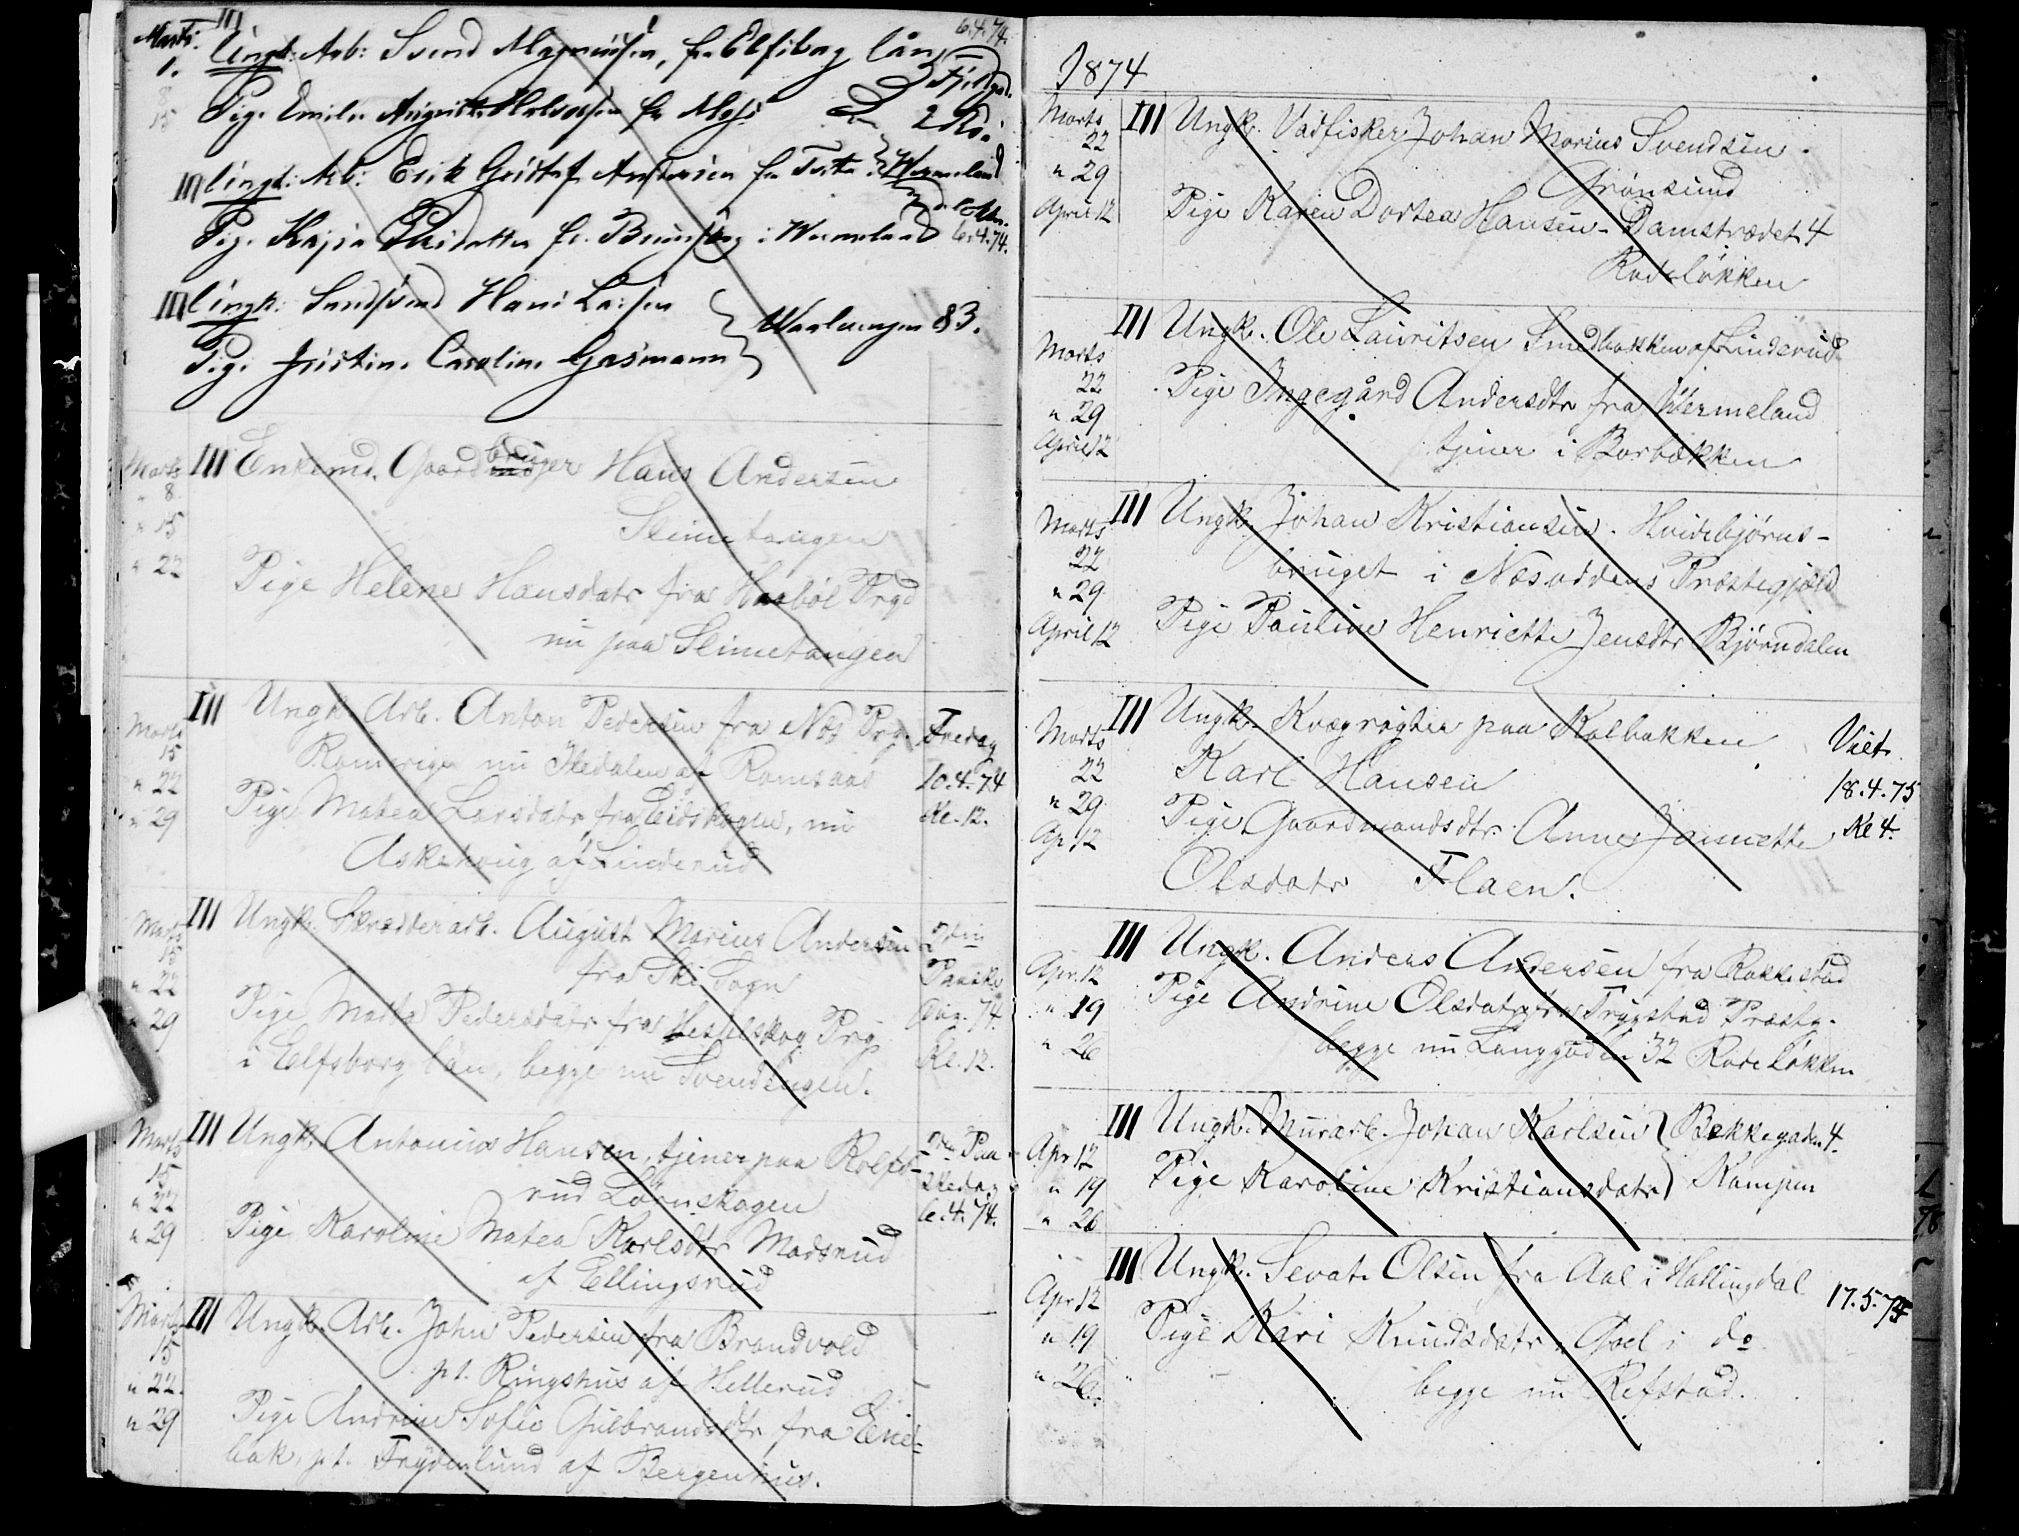 Marts III Ungk: Arb: Svend Magnussen, fra Elfsborg län 6.4.74.
1.
8
15 Pige Emilie Augusta Halvorsen fr. Moss
III Ungk: Arb: Erik Gustaf Andersen fra Wermeland
Pige Kajsa i Wermeland 6.4.74.
III Ungk: Hans Larsen
Waalerengen 83.
Pige Justine Caroline Gasmann
Marts III Enkemd. Gaardbruger Hans Andersen
" 8
" 15 Slimetangen
" 22 Pige Helene Hansdatr fra Haabøl Prgd
nu paa Slimetangen
Marts III Ungk. Arb. Anton Pedersen fra Næs Prg. Fredag
15 Romerige nu Stedalen af Romsaas 10.4.74
" 22 Pige Matea Larsdatr fra Eidskogen, nu Kl. 12.
" 29 Askehoug af Linderud
Marts III Ungk. Skrædderarb. August Marius Andersen 2den
15 fra Ski Sogn Paaske
" 22 Pige Matta Pedersdatr fra Hesselskog Prg. dag. 74
" 29 i Elfsborg län, begge nu Svendengen. Kl. 12.
Marts III Ungk. Antonius Hansen, tjener paa Rolfs- 2den Paa-
15 rud Lørenskogen skedag
" 22 Pige Karoline Matea Karlsdtr Madsrud 6.4.74.
" 29 af Ellingsrud
Marts III Ungk. Arb. John Pedersen fra Brandvold
15 pt. Ringshus af Hellerud
" 22. Pige Andrine Sofie Gulbrandsdtr. fra Ene-
" 29 bak, pt. Frydenlund af Bergenhus.
1874
Marts III Ungk. Vadfisker Johan Marius Svendsen.
22 Grønsund
" 29 Pige Karen Dortea Hansen - Damstrædet 4
April 12 Rodeløkken
Marts III Ungk. Ole Lauritsen Smedbakken af Linderud
22 Pige Ingegård Andersdtr fra Wermeland
" 29 tjener i Borbækken
April 12
Marts III Ungk. Johan Kristiansen. Hvidebjørns-
22 bruget i Næsoddens Præstegjæld
" 29 Pige Pauline Henriette Jensdtr Bjørndalen
April 12
Marts III Ungk. Kvægrøgter paa Kalbakken Viet
22 Karl Hansen 18.4.75
" 29 Pige Gaardmandsdtr. Anne Jannette Kl 4.
Ap. 12 Olsdatr Flaen.
III Ungk. Anders Andersen fra Rakkestad
Apr. 12 Pige Andrine Olsdatr fra Trygstad Præstg.
" 19 begge nu Langgaden 32 Rodeløkken
" 26
III Ungk. Murarb. Johan Karlsen Bekkegaden 4.
Apr 12 Pige Karoline Kristiansdatr Kampen
" 19
" 26
III Ungk. Sevat Olsen fra Aal i Hallingdal
Apr 12 17.5.74
" 19 Pige Kari Knudsdatr, Aal i do
" 26. begge nu Refstad.